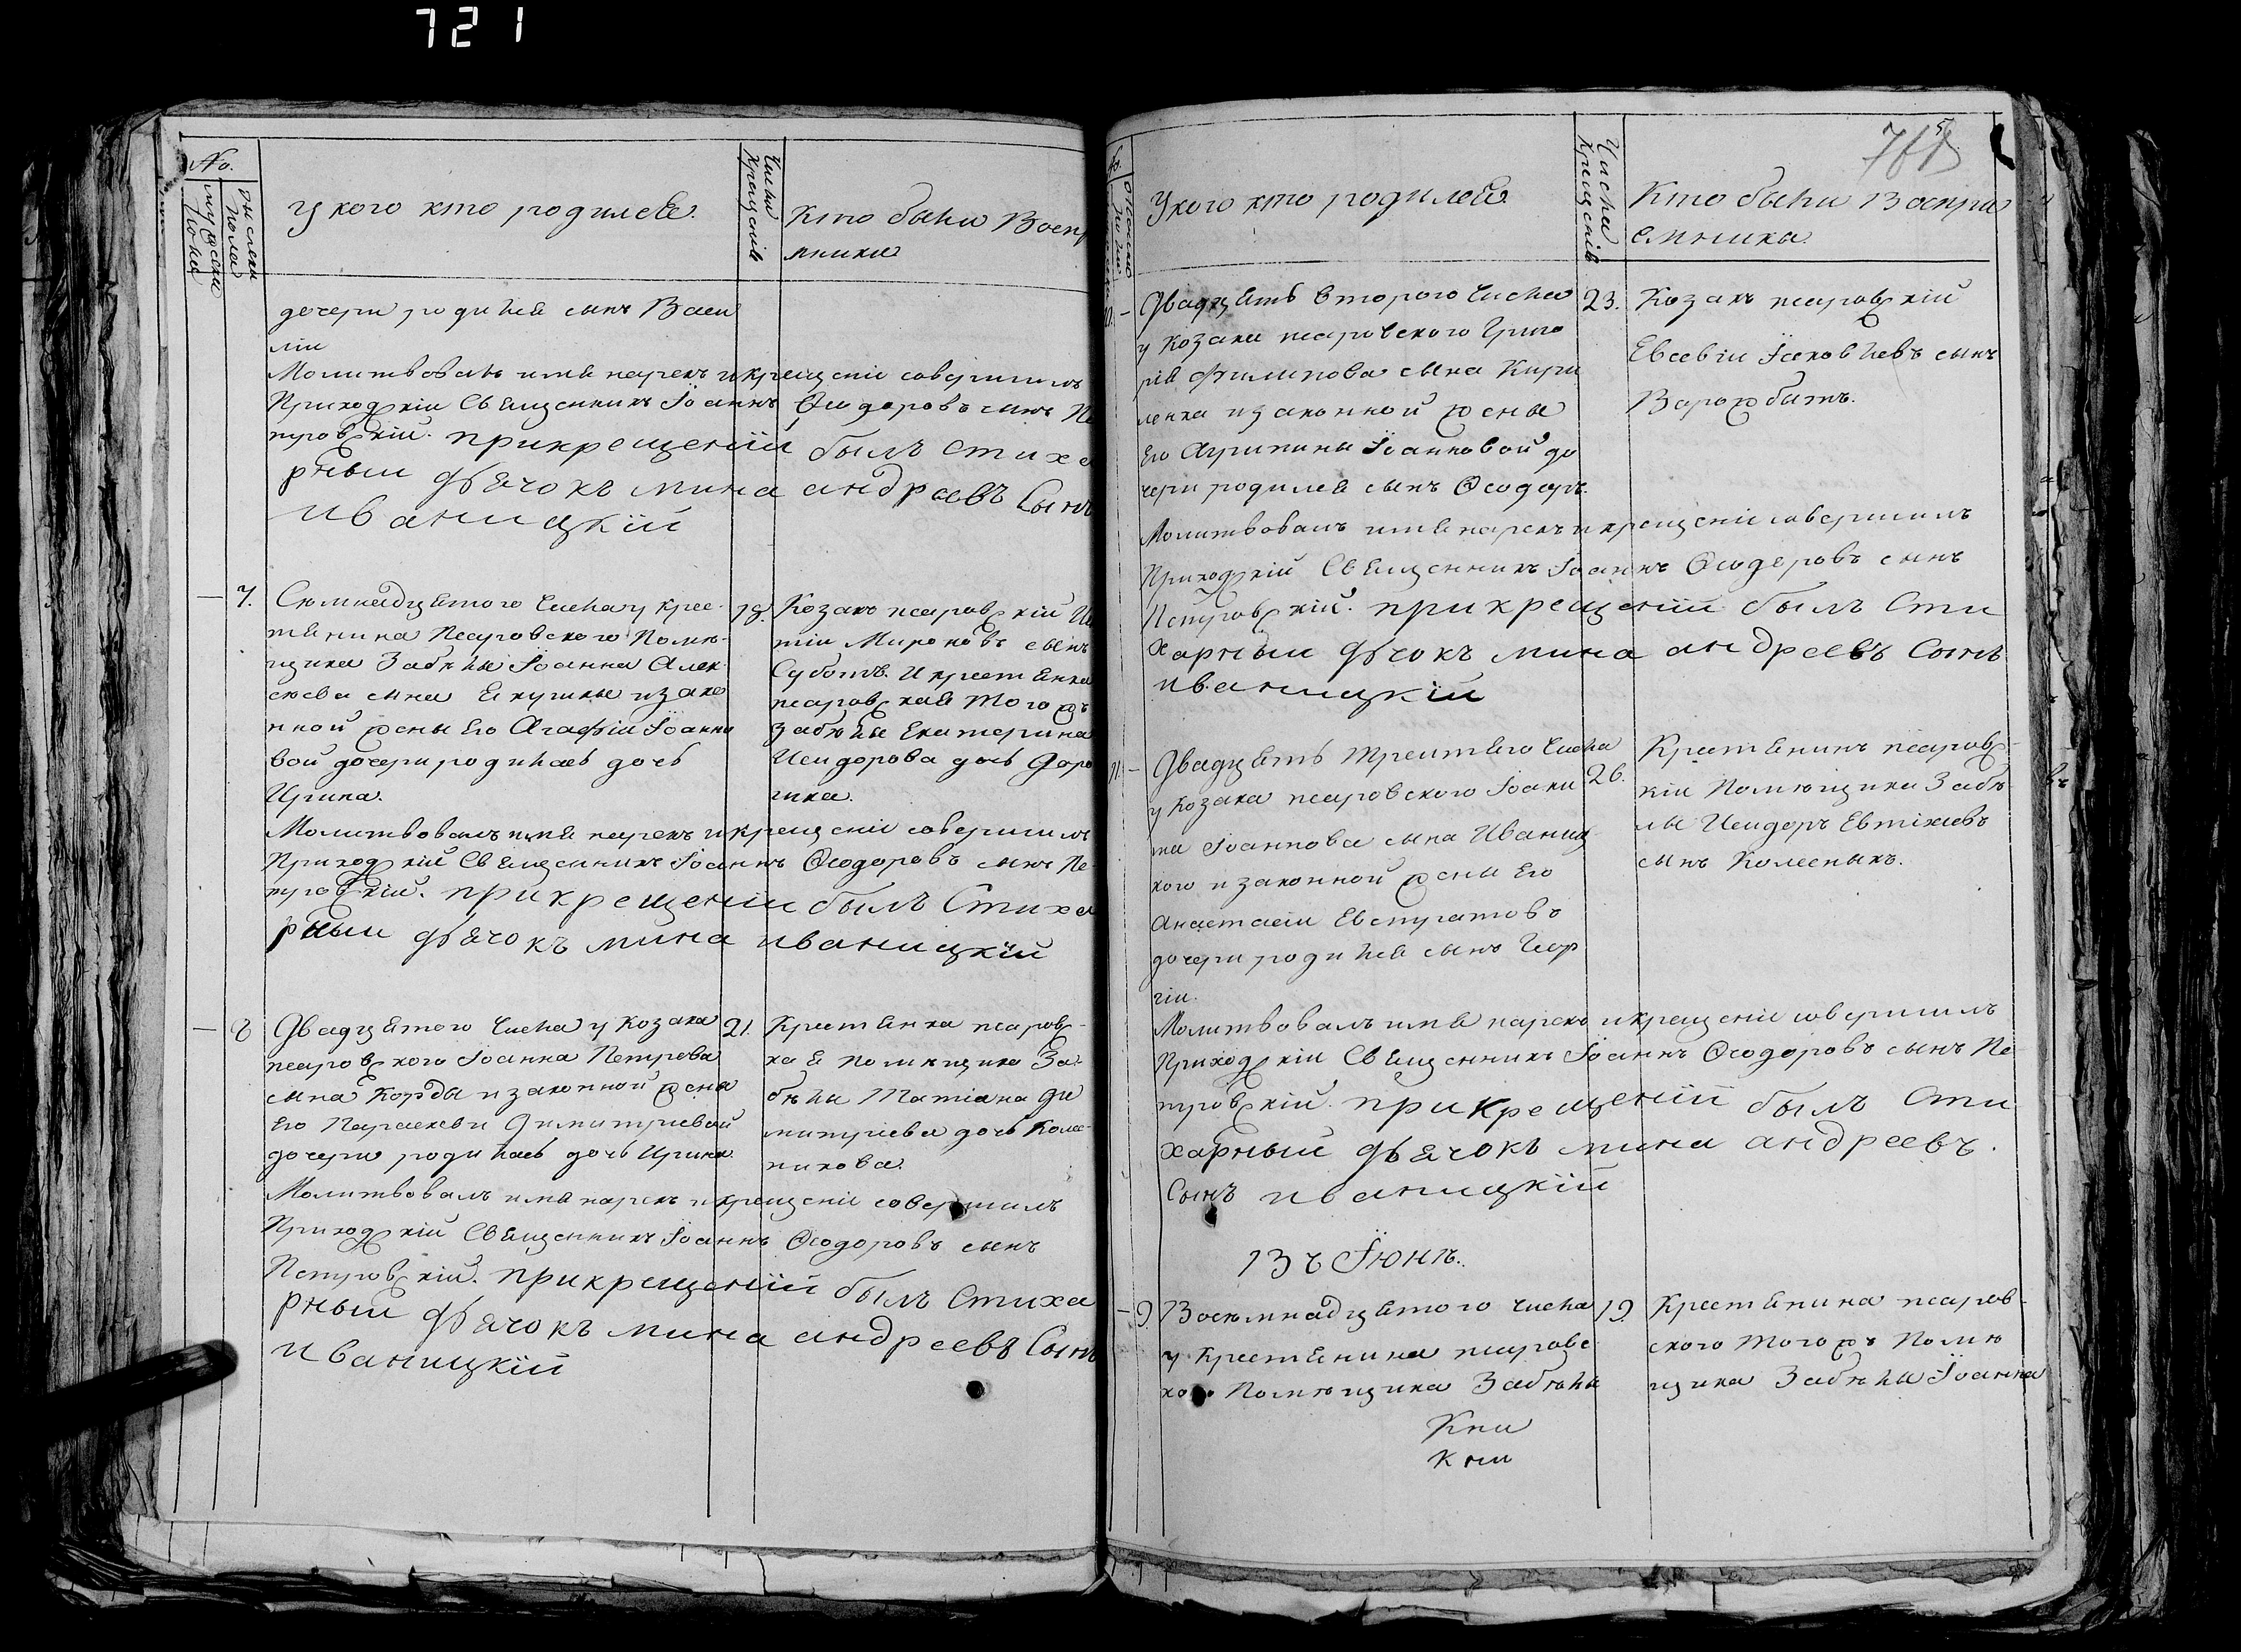 721
No.
мужеска
Пола
женска
Пола
у кого кто родился.
Числа
Крещенія
Кто были Воспр
мники
дочери родился сынъ Васи
лій
Молитвовалъ имя нарекъ и крещеніе совершилъ
Приходскій Священникъ Іоаннъ Ѳеодоровъ сынъ Пе
тровскій. при крещеніи былъ стиха
рный дьячокъ мина андреевъ Сынъ
иваницкій
7. Семнадцятого числа у крес-
тянина Псаровского Помѣ-
щика Забѣлы Іоанна Алек
сѣева сына и зако
нной жены Его Агафіи Іоанно
вой дочери родилась дочь
Ирина.
18. Козакъ псаровскій
тій Мироновъ сынъ
Суботъ. И крестянка
псаровская того жъ
Забѣлы Екатерина
Исидорова дочь
Молитвовалъ имя нарекъ и крещеніе совершилъ
Приходскій Священникъ Іоаннъ Ѳеодоровъ сынъ Пе-
тровскій. при крещеніи былъ Стиха
рный дьячокъ мина иваницкій
8 Двадцятого числа у козака
псаровского Іоанна Петрова
сына Коржа и законной жены
Его Параскевы Димитріевой
дочери родилась дочь Ирина
21. Крестянка псаровс-
кая помѣщика За-
бѣлы Татіана Ди
митріева дочь Колес-
никова.
Молитвовалъ имя нарекъ и крещеніе совершилъ
Приходскій Священникъ Іоаннъ Ѳеодоровъ сынъ
Петровскій. при крещеніи былъ Стиха
рный дьячокъ мина андреевъ Сынъ
иваницкій
У кого кто родился
Числа
Крещенія
Кто были Воспри
емники.
10. Двадцять второго числа
у козака псаровского Григо
рія Филипова сына Кири
ленка и законной жены
Его Агрипины Іоанновой до
чери родился сынъ Ѳеодоръ.
23. Козакъ псаровскій
Евсевій Іаковлевъ сынъ
Ворожбитъ.
Молитвовалъ имя нарекъ и крещеніе совершилъ
Приходскій Священникъ Іоаннъ Ѳеодоровъ сынъ
Петровскій. при крещеніи былъ Сти
харный дьячокъ мина андреевъ Сынъ
иваницкій
11. Двадцять третяго числа
у козака псаровского Іоаки
ма Іоаннова сына Иваниц
кого и законной жены Его
Анастасіи Евстратовъ
дочери родился сынъ Геор
гій.
26. Крестянинъ псаровс-
кій Помѣщика Забѣ
лы Исидоръ Евтіхіевъ
сынъ Колесныкъ.
Молитвовалъ имя нарекъ и крещеніе совершилъ
Приходскій Священникъ Іоаннъ Ѳеодоровъ сынъ Пе-
тровскій. при крещеніи былъ Сти
харный дьячокъ мина андреевъ.
Сынъ иваницкій
Въ Іюнѣ.
9. Восѣмнадцятого числа
у крестянина псаровс
кого Помѣщика Забѣлы
19. Крестянина псаров-
ского того жъ Помѣ
щика Забѣлы Іоанна